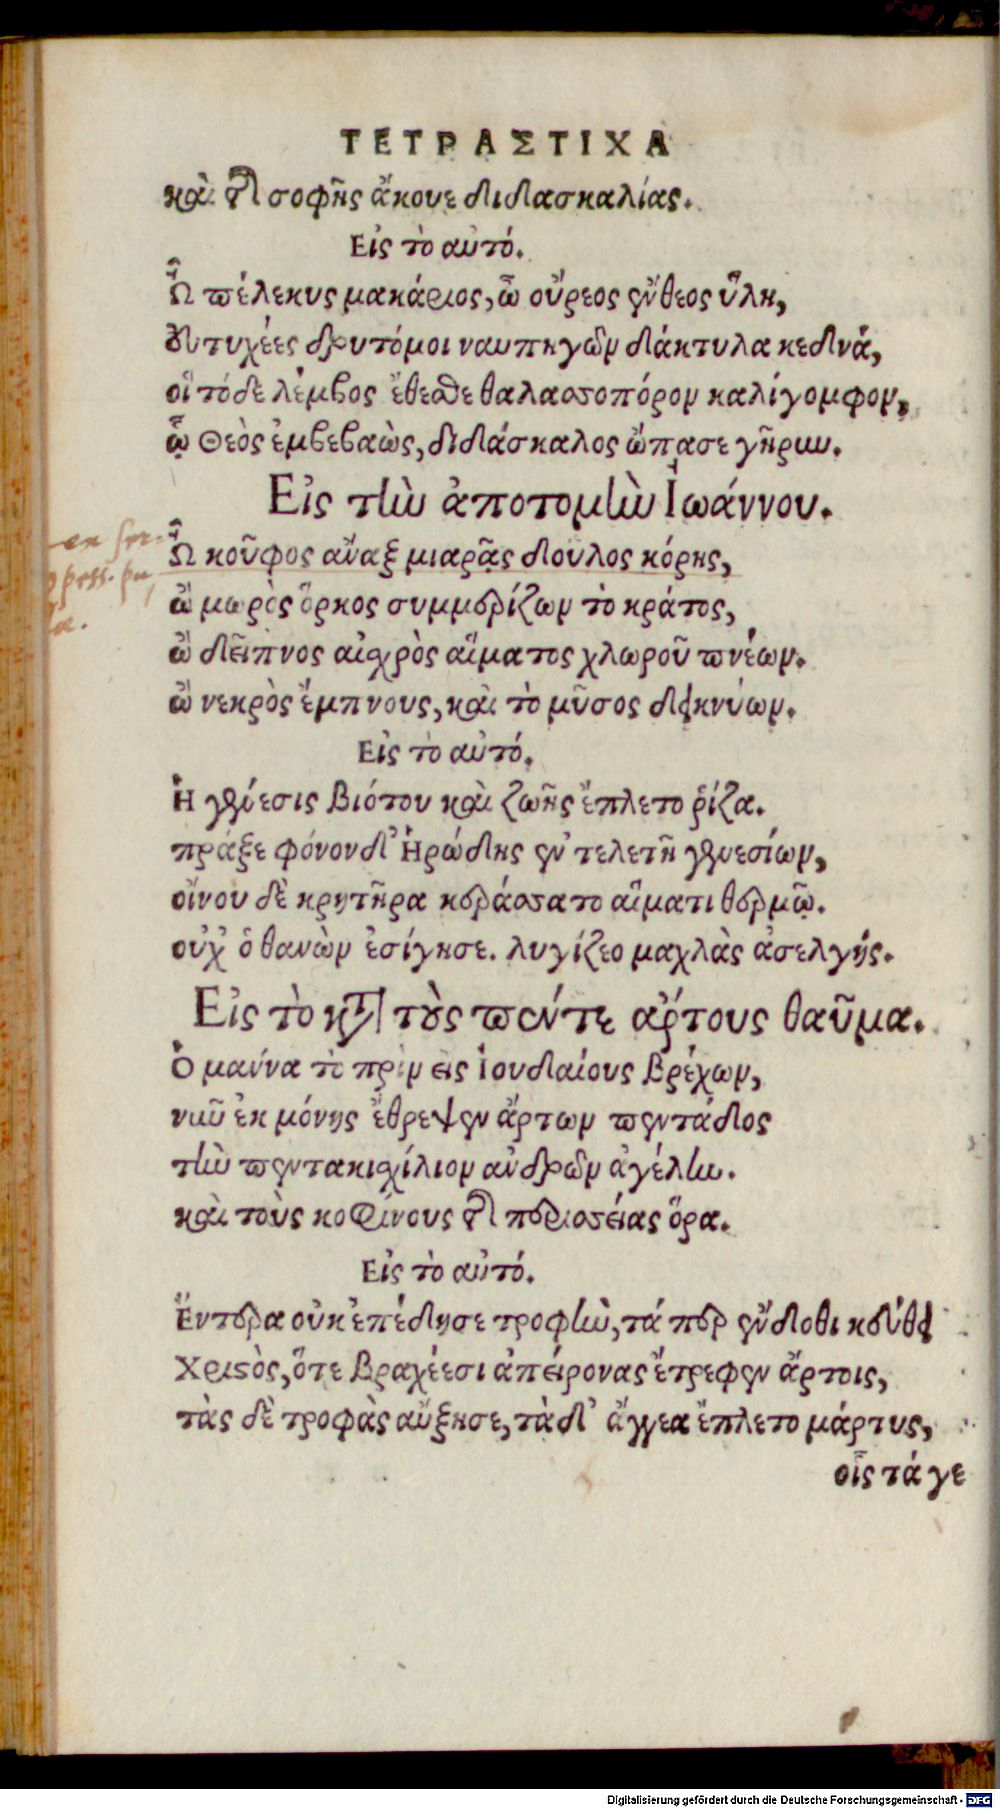 ΤΕΤΡΑΣΤΙΧΑ
καὶ τῆς σοφῆς ἄκουε διδασκαλίας.
Εἰς τὸ αὐτό.
Ὦ πέλεκυς μακάριος, ὦ οὔρεος ἔνθεος ὕλη,
εὐτυχέες δρυτόμοι ναυπηγῶν δάκτυλα κεδνά,
οἳ τόδε λέμβος ἔθεσθε θαλασσοπόρον καλίγομφον,
ᾧ Θεὸς ἐμβεβαὼς, διδάσκαλος ὤπασε γῆρυν.
Εἰς τὴν ἀποτομὴν Ἰωάννου.
Ὦ κοῦφος ἄναξ μιαρᾶς δοῦλος κόρης,
ὢ μωρὸς ὅρκος συμμερίζων τὸ κράτος,
ὢ δεῖπνος αἰσχρὸς αἵματος χλωροῦ πνέων.
ὢ νεκρὸς ἔμπνους, καὶ τὸ μῦσος δεικνύων.
Εἰς τὸ αὐτό.
Ἡ γένεσις βιότου καὶ ζωῆς ἔπλετο ῥίζα.
πράξε φόνον δ' Ἡρώδης ἐν τελετῇ γενεσίων,
οἴνου δὲ κρητῆρα κεράσσατο αἵματι θερμῷ.
οὐχ ὁ θανὼν ἐσίγησε. λυγίζεο μαχλὰς ἀσελγής.
Εἰς τὸ κατὰ τοὺς πέντε ἄρτους θαῦμα.
Ὁ μάννα τὸ πρὶν εἰς Ἰουδαίους βρέχων,
νῦν ἐκ μόνης ἔθρεψεν ἄρτων πεντάδος
τὴν πεντακισχίλιον ἀνδρῶν ἀγέλην.
καὶ τοὺς κοφίνους τῆς περισσείας ὅρα.
Εἰς τὸ αὐτό.
Ἔντερα οὐκ ἐπέδησε τροφὴν, τά περ ἔνδοθι κεύθει
Χριστὸς, ὅτε βραχέεσι ἀπείρονας ἔτρεφεν ἄρτοις,
τὰς δὲ τροφὰς αὔξησε, τὰ δ' ἄγγεα ἔπλετο μάρτυς,
οἷς τά γε
Digitalisierung gefördert durch die Deutsche Forschungsgemeinschaft - DFG